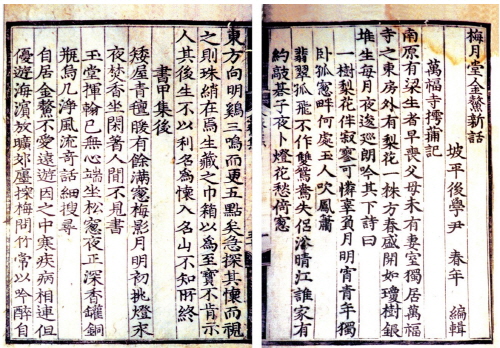 梅月堂金鰲新話
坡平後學尹 春年 編輯
萬福寺摴蒱記
南原有梁生者早喪父母未有妻室獨居萬福
寺之東房外有梨花一株方春盛開如瓊樹銀
堆生每月夜逡巡朗吟其下詩曰
一樹梨花伴寂寥可憐辜負月明宵青年獨
臥孤窓畔何處玉人吹鳳簫
翡翠孤飛不作雙鴛鴦失侶浴晴江誰家有
約敲碁子夜卜燈花愁倚窓
東方向明鷄三鳴而更五點矣急探其懷而視
之則珠綃在焉生藏之巾箱以爲至寶不肯示
人其後生不以利名爲懷入名山不知所終
書甲集後
矮屋青氈暖有餘滿窓梅影月明初挑燈永
夜焚香坐閑著人間不見書
玉堂揮翰已無心端坐松窓夜正深香罐銅
瓶烏几淨風流奇話細搜尋
自居金鰲不愛遠遊因之中寒疾病相連但
優遊海濱放曠郊廛探梅問竹常以吟醉自